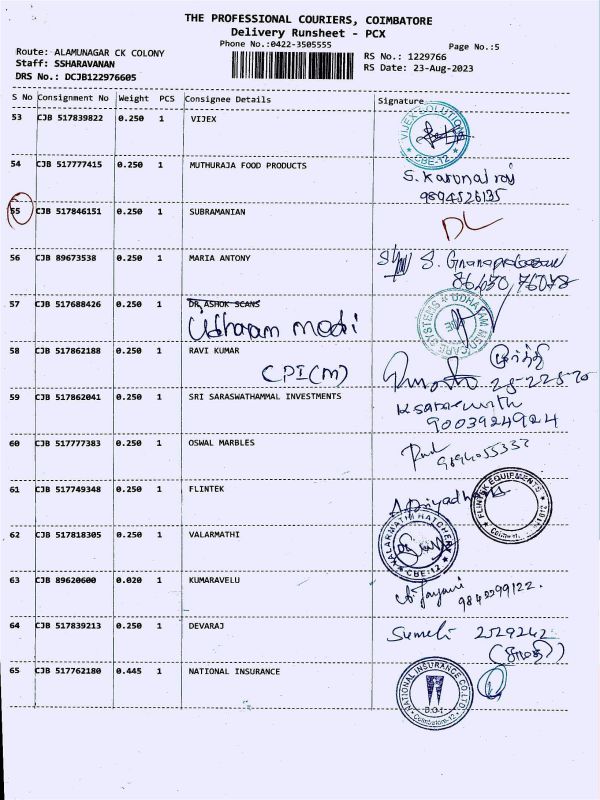 THE PROFESSIONAL COURIERS, COIMBATORE
Delivery Runsheet - PCX
Phone No.:0422-3505555
Page No.:5
Route: ALAMUNAGAR CK COLONY
Staff: SSHARAVANAN
DRS No.: DCJB122976605
RS No.: 1229766
RS Date: 23-Aug-2023
S No Consignment No Weight PCS Consignee Details Signature
53 CJB 517839822 0.250 1 VIJEX
CBE-12
54 CJB 517777415 0.250 1 MUTHURAJA FOOD PRODUCTS
S. Karunai roj
9894526135
55 CJB 517846151 0.250 1 SUBRAMANIAN DL
56 CJB 89673538 0.250 1 MARIA ANTONY
57 CJB 517688426 0.250 1 DR ASHOK SCANS
Udharam medi
58 CJB 517862188 0.250 1 RAVI KUMAR
CPI(M)
59 CJB 517862041 0.250 1 SRI SARASWATHAMMAL INVESTMENTS
9003924924
60 CJB 517777383 0.250 1 OSWAL MARBLES
61 CJB 517749348 0.250 1 FLINTEK
A. Priyadh
FLINTEK EQUIPMENTS
62 CJB 517818305 0.250 1 VALARMATHI
VALARMATHI HATCHERY
CBE-12
63 CJB 89620600 0.020 1 KUMARAVELU
A. Jayani
64 CJB 517839213 0.250 1 DEVARAJ
Sumathi 2529242
65 CJB 517762180 0.445 1 NATIONAL INSURANCE
NATIONAL INSURANCE CO.LTD.
Coimbatore-12